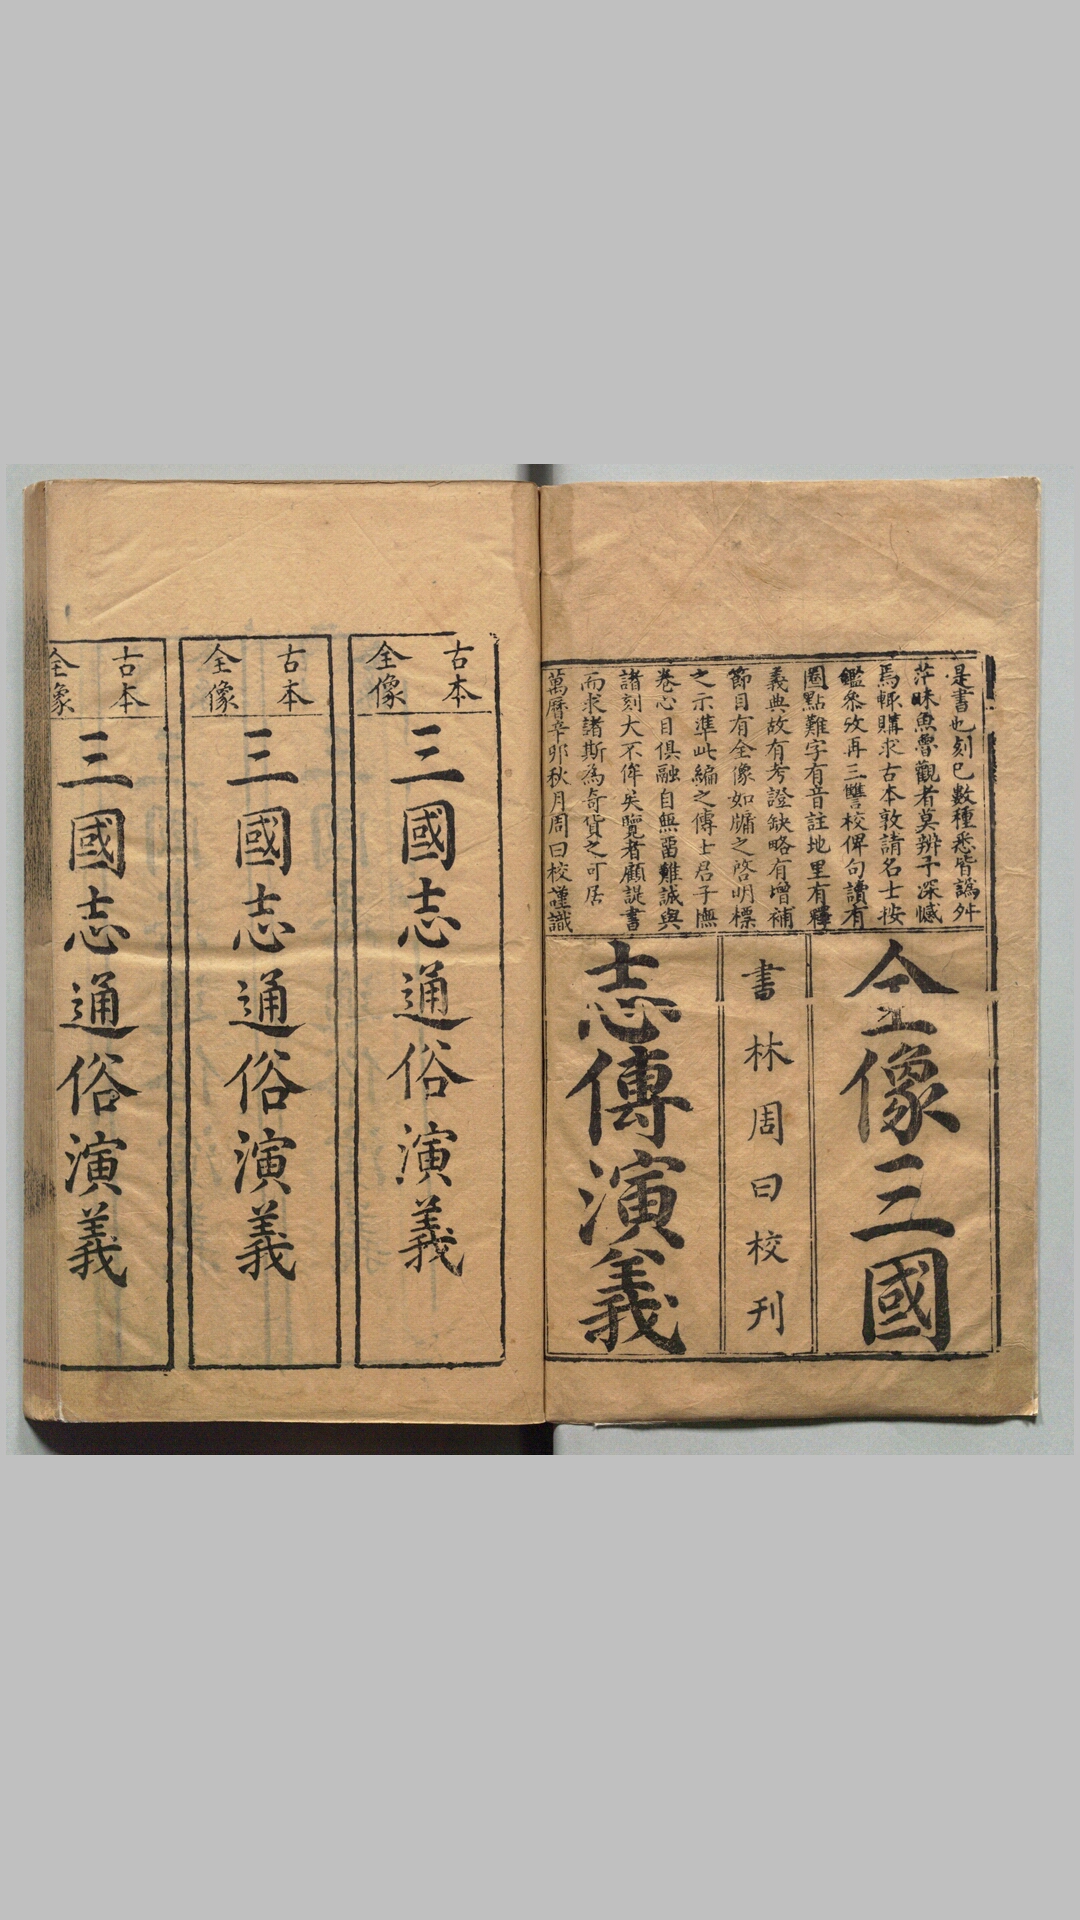 是書也刻已數種悉皆譌舛
茫昧魚魯觀者莫辨予深憾
焉輒購求古本敦請名士按
鑑參攷再三讐校俾句讀有
圈點難字有音註地里有釋
義典故有考證缺略有增補
節目有全像如牖之啓明標
之示準此編之傳士君子憮
卷心目俱融自無留難誠與
諸刻大不侔矣覽者顧諟書
而求諸斯為奇貨之可居
萬曆辛卯秋月周曰校謹識
全像三國
書林周曰校刊
志傳演義
古本
全像
三國志通俗演義
古本
全像
三國志通俗演義
古本
全像
三國志通俗演義